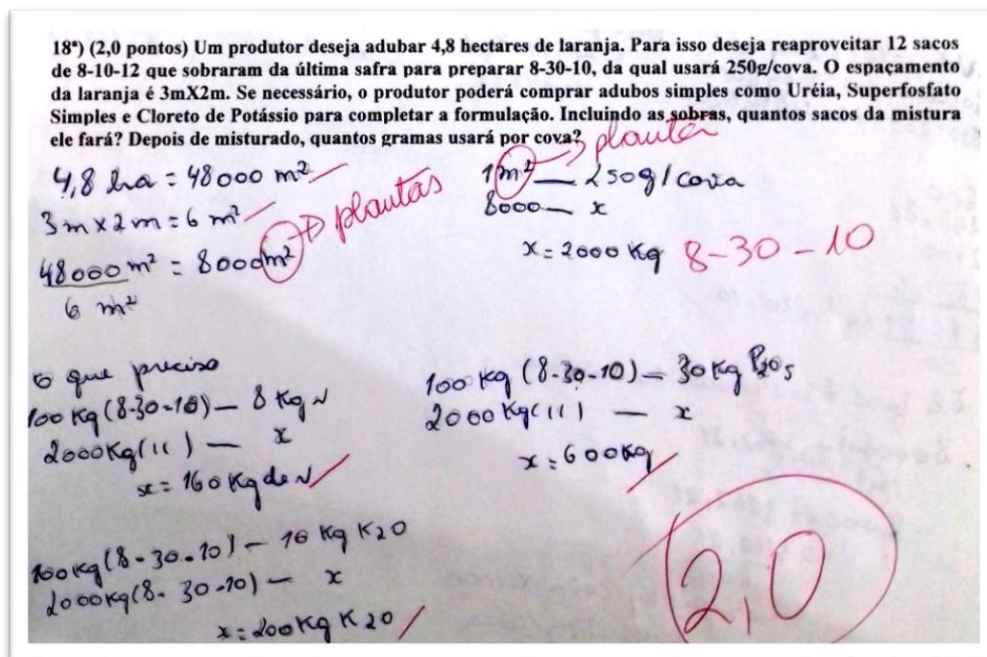 18ª) (2,0 pontos) Um produtor deseja adubar 4,8 hectares de laranja. Para isso deseja reaproveitar 12 sacos
de 8-10-12 que sobraram da última safra para preparar 8-30-10, da qual usará 250g/cova. O espaçamento
da laranja é 3mX2m. Se necessário, o produtor poderá comprar adubos simples como Uréia, Superfosfato
Simples e Cloreto de Potássio para completar a formulação. Incluindo as sobras, quantos sacos da mistura
ele fará? Depois de misturado, quantos gramas usará por cova?
4,8 ha = 48000 m²
3m x 2m = 6 m²
48000 m² = 8000 m²
6 m²
plantas
1 m² — 250g/cova
planta
8000 — x
x = 2000 Kg 8-30-10
o que preciso
100 Kg (8-30-10) — 8 Kg N
2000 Kg (11) — x
x = 160 Kg de N
100 Kg (8-30-10) — 30 Kg P2O5
2000 Kg (11) — x
x = 600 Kg
100 Kg (8-30-10) — 10 Kg K2O
2000 Kg (8-30-10) — x
x = 200 Kg K2O
2,0